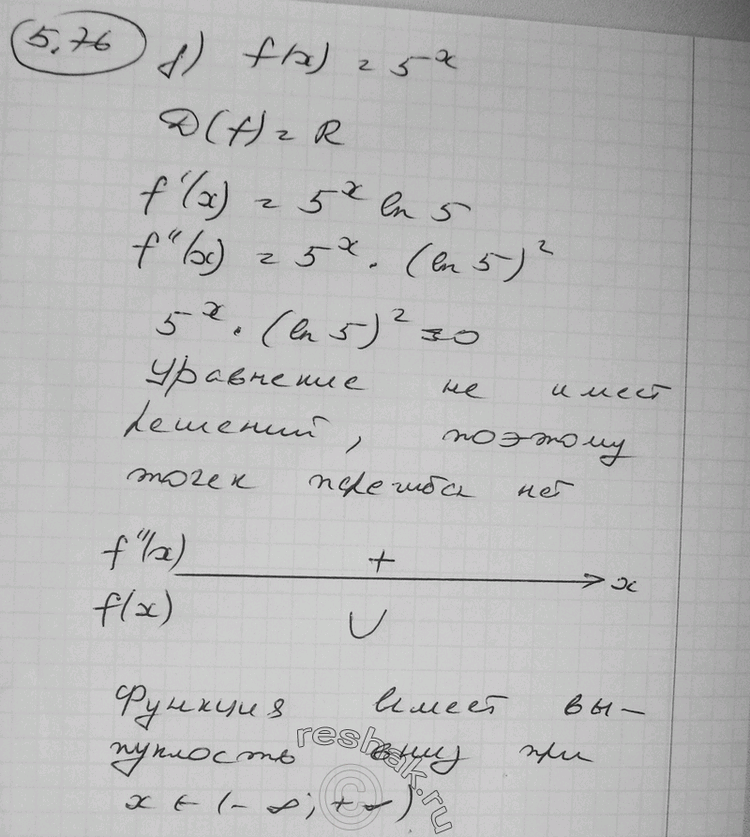 5.76 f) f(x) = 5^x
D(f) = R
f'(x) = 5^x ln 5
f''(x) = 5^x · (ln 5)^2
5^x · (ln 5)^2 = 0
Уравнение не имеет
решений, поэтому
точек перегиба нет
f''(x) +
x
f(x) ∪
Функция имеет вы-
пуклость вниз при
reshak.ru
©
x ∈ (-∞; +∞)